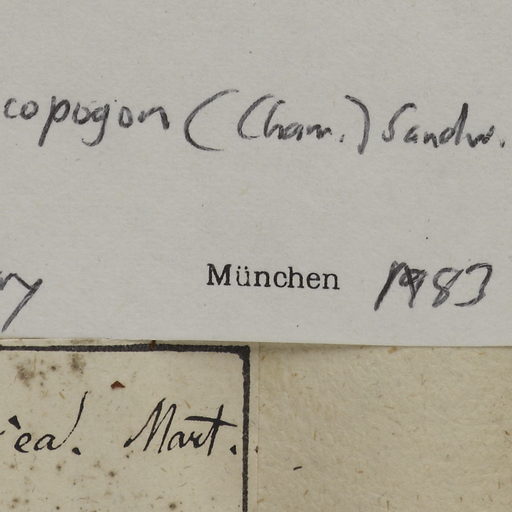 copogon (Cham.) Sandw.
ry München 1983
ea. Mart.